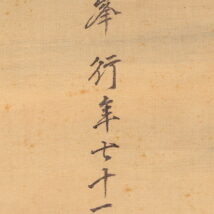 峯行年七十一